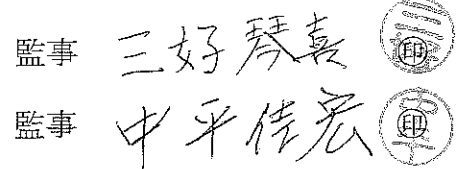 監事 三好琴喜 ㊞
監事 中平佳宏 ㊞